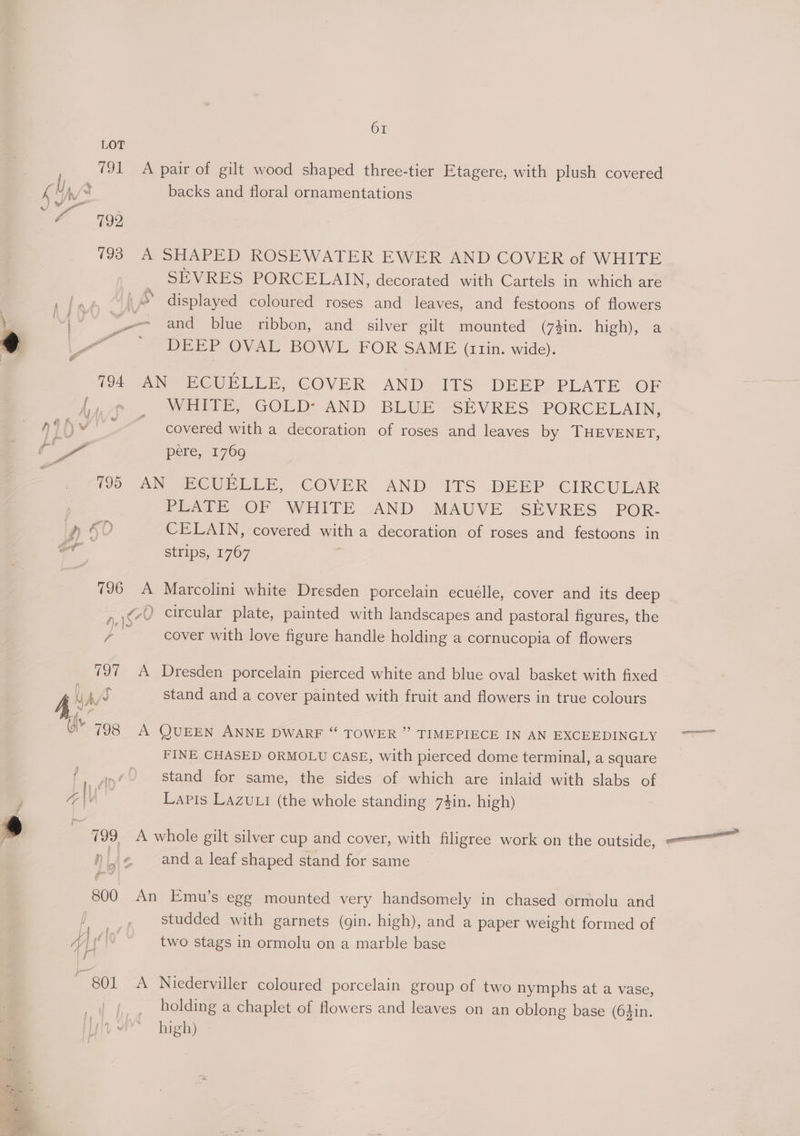 61
LOT
791 A pair of gilt wood shaped three-tier Etagere, with plush covered
backs and floral ornamentations
792
793 A SHAPED ROSEWATER EWER AND COVER of WHITE
SEVRES PORCELAIN, decorated with Cartels in which are
displayed coloured roses and leaves, and festoons of flowers
and blue ribbon, and silver gilt mounted (7¾in. high), a
DEEP OVAL BOWL FOR SAME (11in. wide).
794 AN ECUÉLLE, COVER AND ITS DEEP PLATE OF
WHITE, GOLD AND BLUE SÈVRES PORCELAIN,
covered with a decoration of roses and leaves by THEVENET,
père, 1769
795 AN ECUÉLLE, COVER AND ITS DEEP CIRCULAR
PLATE OF WHITE AND MAUVE SÈVRES POR-
CELAIN, covered with a decoration of roses and festoons in
strips, 1767
796 A Marcolini white Dresden porcelain ecuélle, cover and its deep
circular plate, painted with landscapes and pastoral figures, the
cover with love figure handle holding a cornucopia of flowers
797 A Dresden porcelain pierced white and blue oval basket with fixed
stand and a cover painted with fruit and flowers in true colours
798 A QUEEN ANNE DWARF “ TOWER ” TIMEPIECE IN AN EXCEEDINGLY
FINE CHASED ORMOLU CASE, with pierced dome terminal, a square
stand for same, the sides of which are inlaid with slabs of
LAPIS LAZULI (the whole standing 7¾in. high)
799 A whole gilt silver cup and cover, with filigree work on the outside,
and a leaf shaped stand for same
800 An Emu’s egg mounted very handsomely in chased ormolu and
studded with garnets (9in. high), and a paper weight formed of
two stags in ormolu on a marble base
801 A Niederviller coloured porcelain group of two nymphs at a vase,
holding a chaplet of flowers and leaves on an oblong base (6¾in.
high)